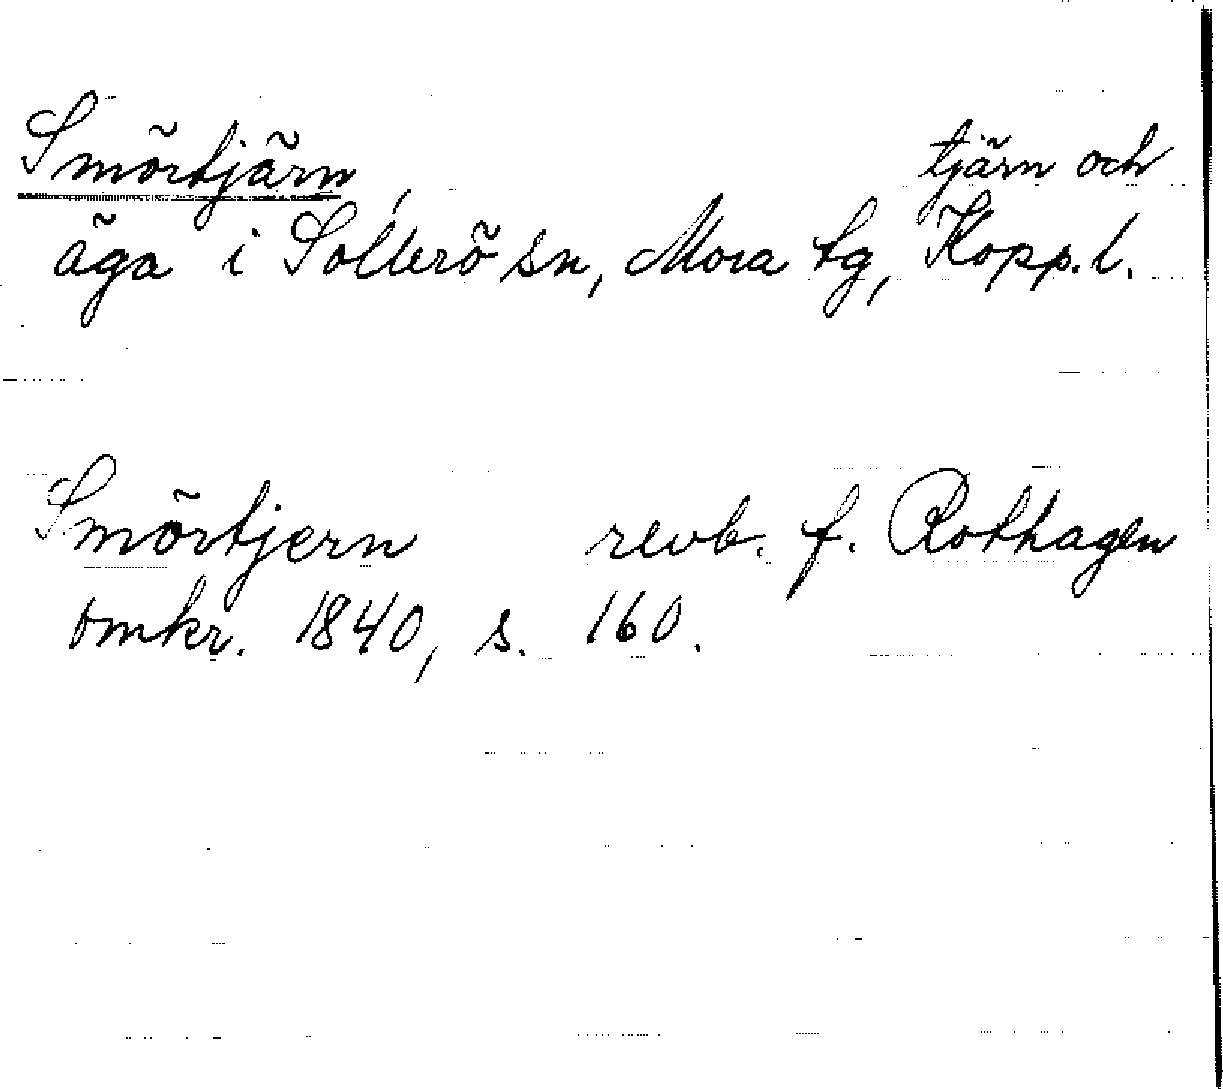 Smörtjärn tjärn och
äga i Sollerö sn, Mora tg, Kopp. l.
Smörtjern revb. f. Rothagen
omkr. 1840, s. 160.